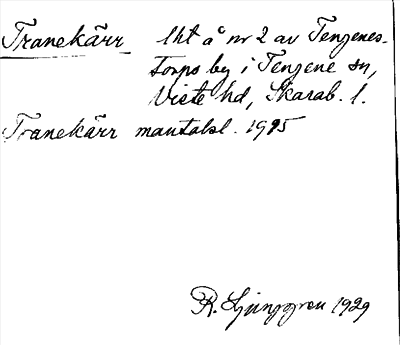 Tranekärr lht å nr 2 av Tengenes-
torps by i Tengene sn,
Viste hd, Skarab. l.
Tranekärr mantalsl. 1915
R. Ljunggren 1929